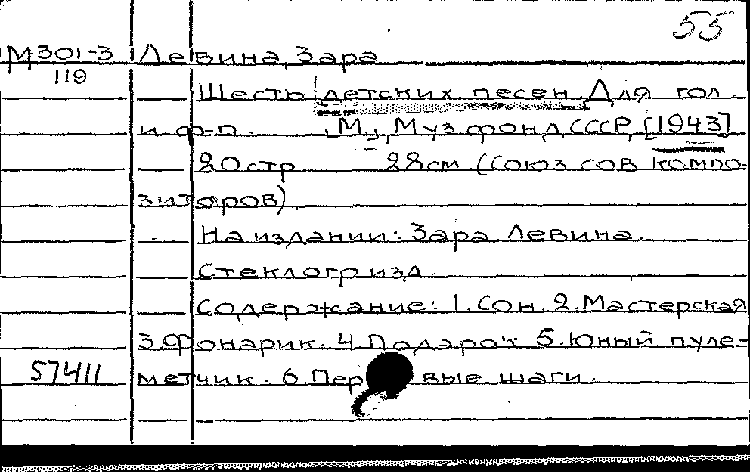 55
М301-3 Левина, Зара
119
Шесть детских песен. Для гол.
и ф-п. М., Музфонд СССР, [1943]
20 стр 28 см (Союз сов компо-
зиторов)
На издании: Зара Левина.
Стеклогр изд
Содержание: 1. Сон. 2. Мастерская
3. Фонарик. 4. Подарок 5. Юный пуле-
57411 метчик. 6 Первые шаги.